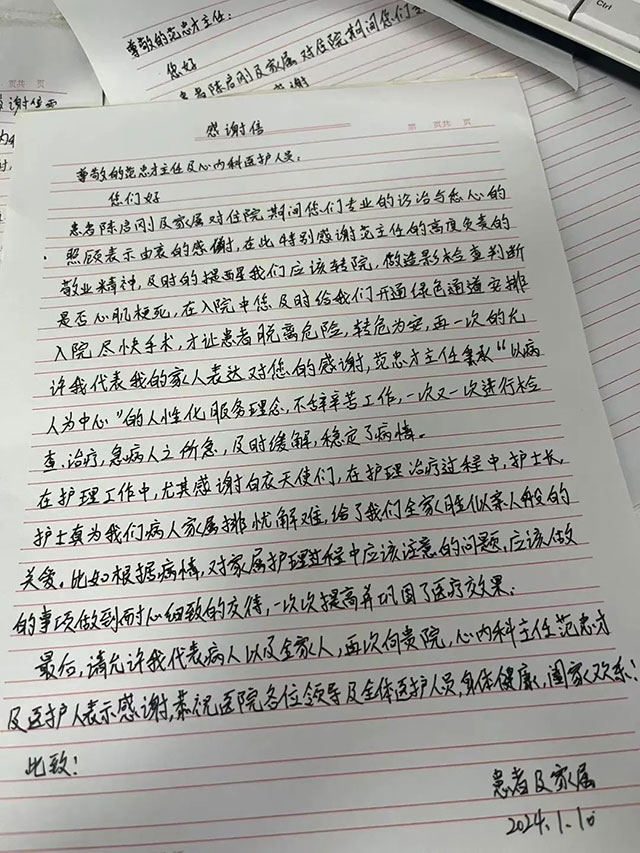 尊敬的范忠才主任:
您好
患者陈启刚及家属对住院期间您们
页共 页
感谢信
第 页共 页
尊敬的范忠才主任及心内科医护人员:
您们好
患者陈启刚及家属对住院期间您们专业的诊治与悉心的
照顾表示由衷的感谢,在此特别感谢范主任的高度负责的
敬业精神,及时的提醒我们应该转院,做造影检查判断
是否心肌梗死,在入院中您及时给我们开通绿色通道安排
入院尽快手术,才让患者脱离危险,转危为安,再一次的允
许我代表我的家人表达对您的感谢,范忠才主任秉承“以病
人为中心”的人性化服务理念,不辞辛苦工作,一次又一次进行检
查、治疗,急病人之所急,及时缓解,稳定了病情。
在护理工作中,尤其感谢白衣天使们,在护理治疗过程中,护士长、
护士真为我们病人家属排忧解难,给了我们全家胜似亲人般的
关爱。比如根据病情,对家属护理过程中应该注意的问题,应该做
的事项做到耐心细致的交待,一次次提高并巩固了医疗效果。
最后,请允许我代表病人以及全家人,再次向贵院,心内科主任范忠才
及医护人表示感谢,恭祝医院各位领导及全体医护人员,身体健康,阖家欢乐!
此致!
患者及家属
2024.1.10